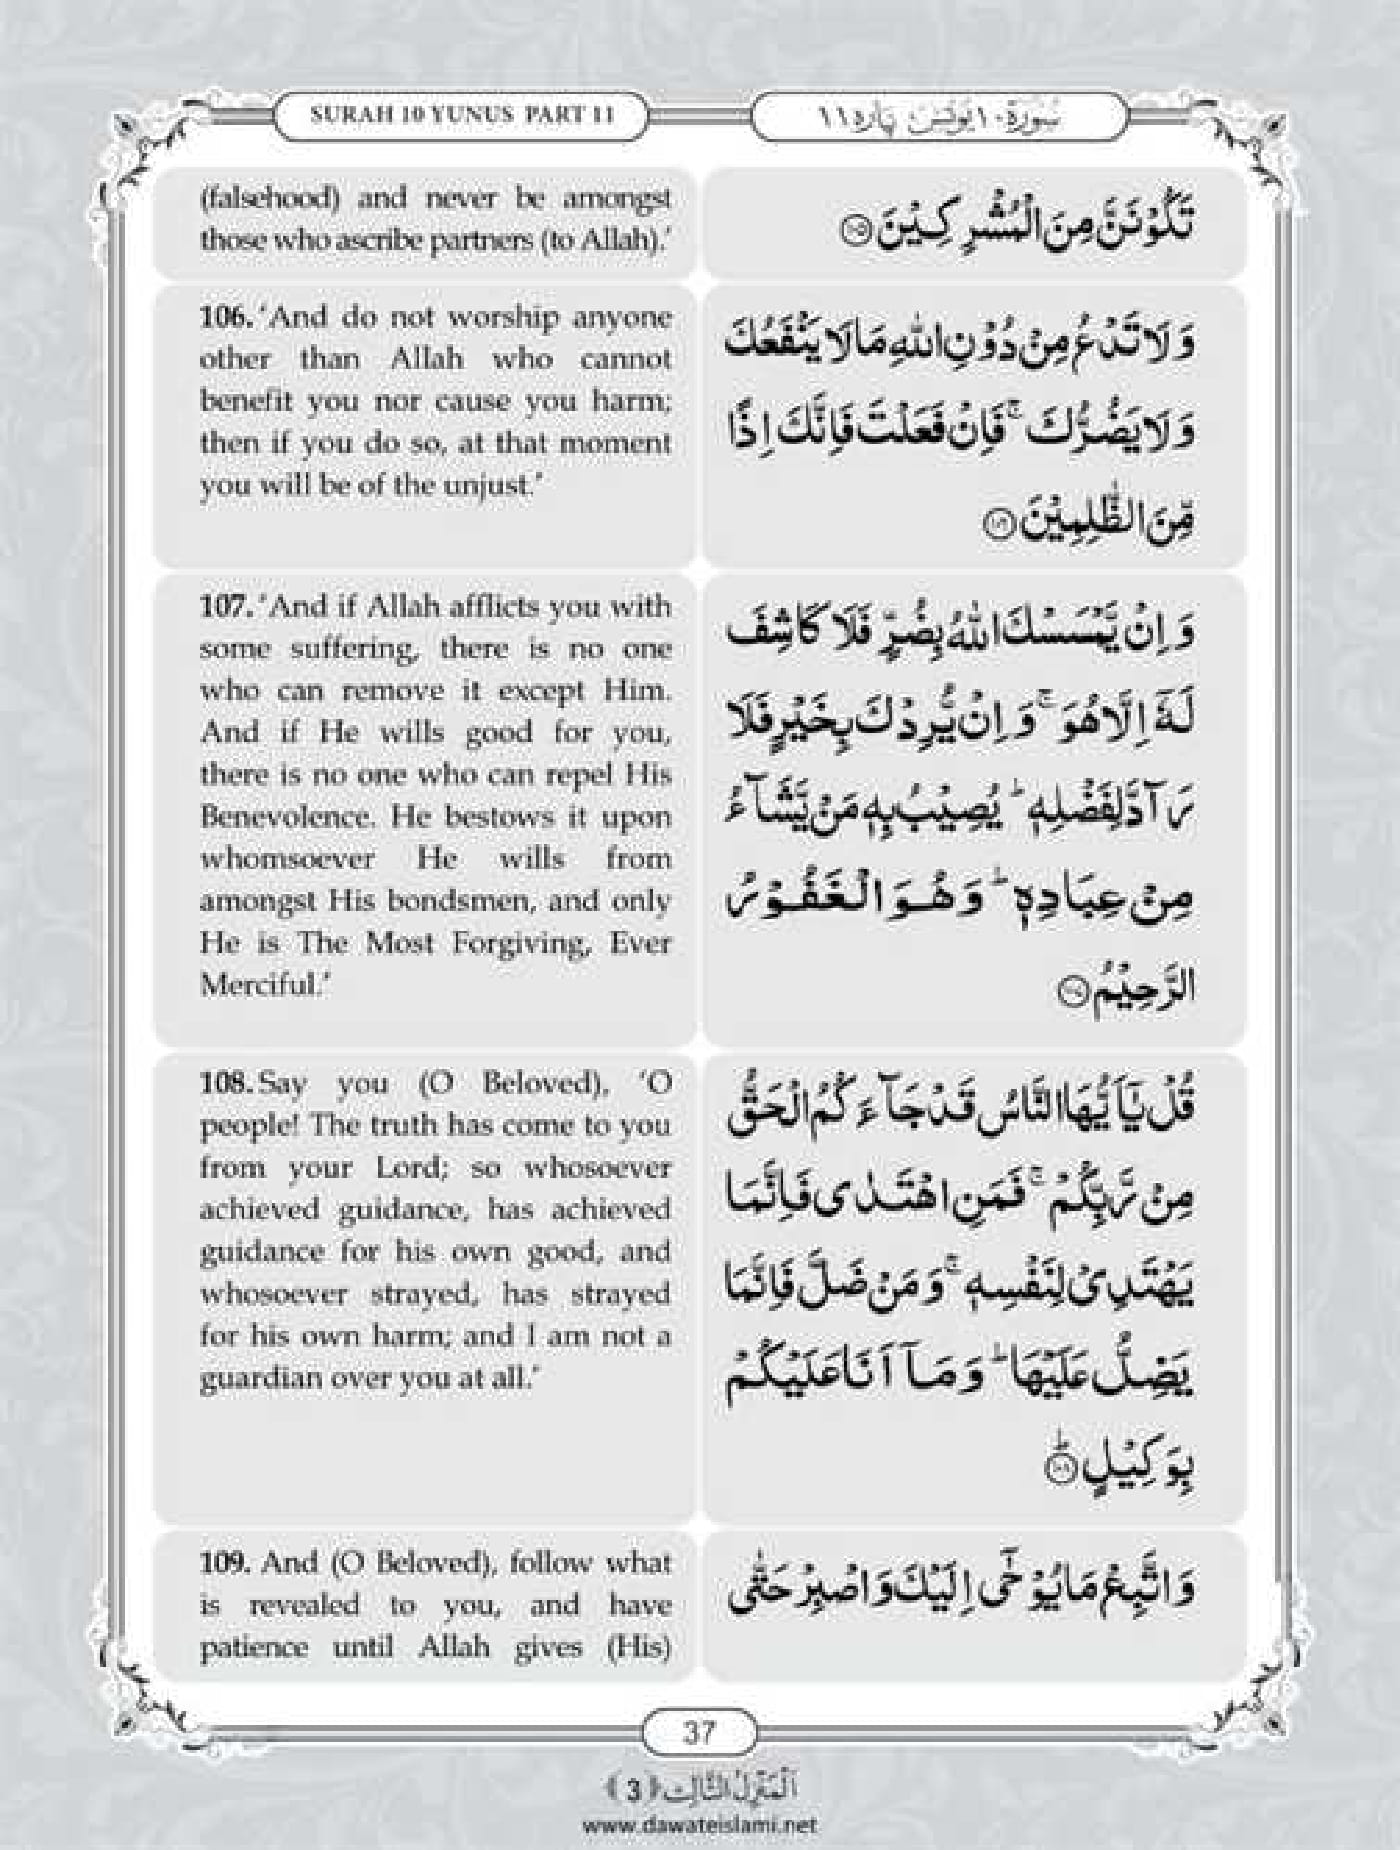 SURAH 10 YUNUS PART 11
سُوْرَة ١٠ يُوْنُس پاره ١١
(falsehood) and never be amongst
those who ascribe partners (to Allah).’
تَكُوْنَنَّ مِنَ الْمُشْرِكِيْنَ ﴿١٠٥﴾
106. ‘And do not worship anyone
other than Allah who cannot
benefit you nor cause you harm;
then if you do so, at that moment
you will be of the unjust.’
وَ لَا تَدْعُ مِنْ دُوْنِ اللّٰهِ مَا لَا يَنْفَعُكَ
وَ لَا يَضُرُّكَ ۚ فَاِنْ فَعَلْتَ فَاِنَّكَ اِذًا
مِّنَ الظّٰلِمِيْنَ ﴿١٠٦﴾
107. ‘And if Allah afflicts you with
some suffering, there is no one
who can remove it except Him.
And if He wills good for you,
there is no one who can repel His
Benevolence. He bestows it upon
whomsoever He wills from
amongst His bondsmen, and only
He is The Most Forgiving, Ever
Merciful.’
وَ اِنْ يَّمْسَسْكَ اللّٰهُ بِضُرٍّ فَلَا كَاشِفَ
لَهٗۤ اِلَّا هُوَ ۚ وَ اِنْ يُّرِدْكَ بِخَيْرٍ فَلَا
رَآدَّ لِفَضْلِهٖ ؕ يُصِيْبُ بِهٖ مَنْ يَّشَآءُ
مِنْ عِبَادِهٖ ؕ وَ هُوَ الْغَفُوْرُ
الرَّحِيْمُ ﴿١٠٧﴾
108. Say you (O Beloved), ‘O
people! The truth has come to you
from your Lord; so whosoever
achieved guidance, has achieved
guidance for his own good, and
whosoever strayed, has strayed
for his own harm; and I am not a
guardian over you at all.’
قُلْ يٰۤاَيُّهَا النَّاسُ قَدْ جَآءَكُمُ الْحَقُّ
مِنْ رَّبِّكُمْ ۚ فَمَنِ اهْتَدٰى فَاِنَّمَا
يَهْتَدِىْ لِنَفْسِهٖ ۚ وَ مَنْ ضَلَّ فَاِنَّمَا
يَضِلُّ عَلَيْهَا ؕ وَ مَاۤ اَنَا عَلَيْكُمْ
بِوَكِيْلٍ ؕ﴿١٠٨﴾
109. And (O Beloved), follow what
is revealed to you, and have
patience until Allah gives (His)
وَ اتَّبِعْ مَا يُوْحٰۤى اِلَيْكَ وَ اصْبِرْ حَتّٰى
37
اَلْمَنْزِلُ الثَّالِث ﴿3﴾
www.dawateislami.net